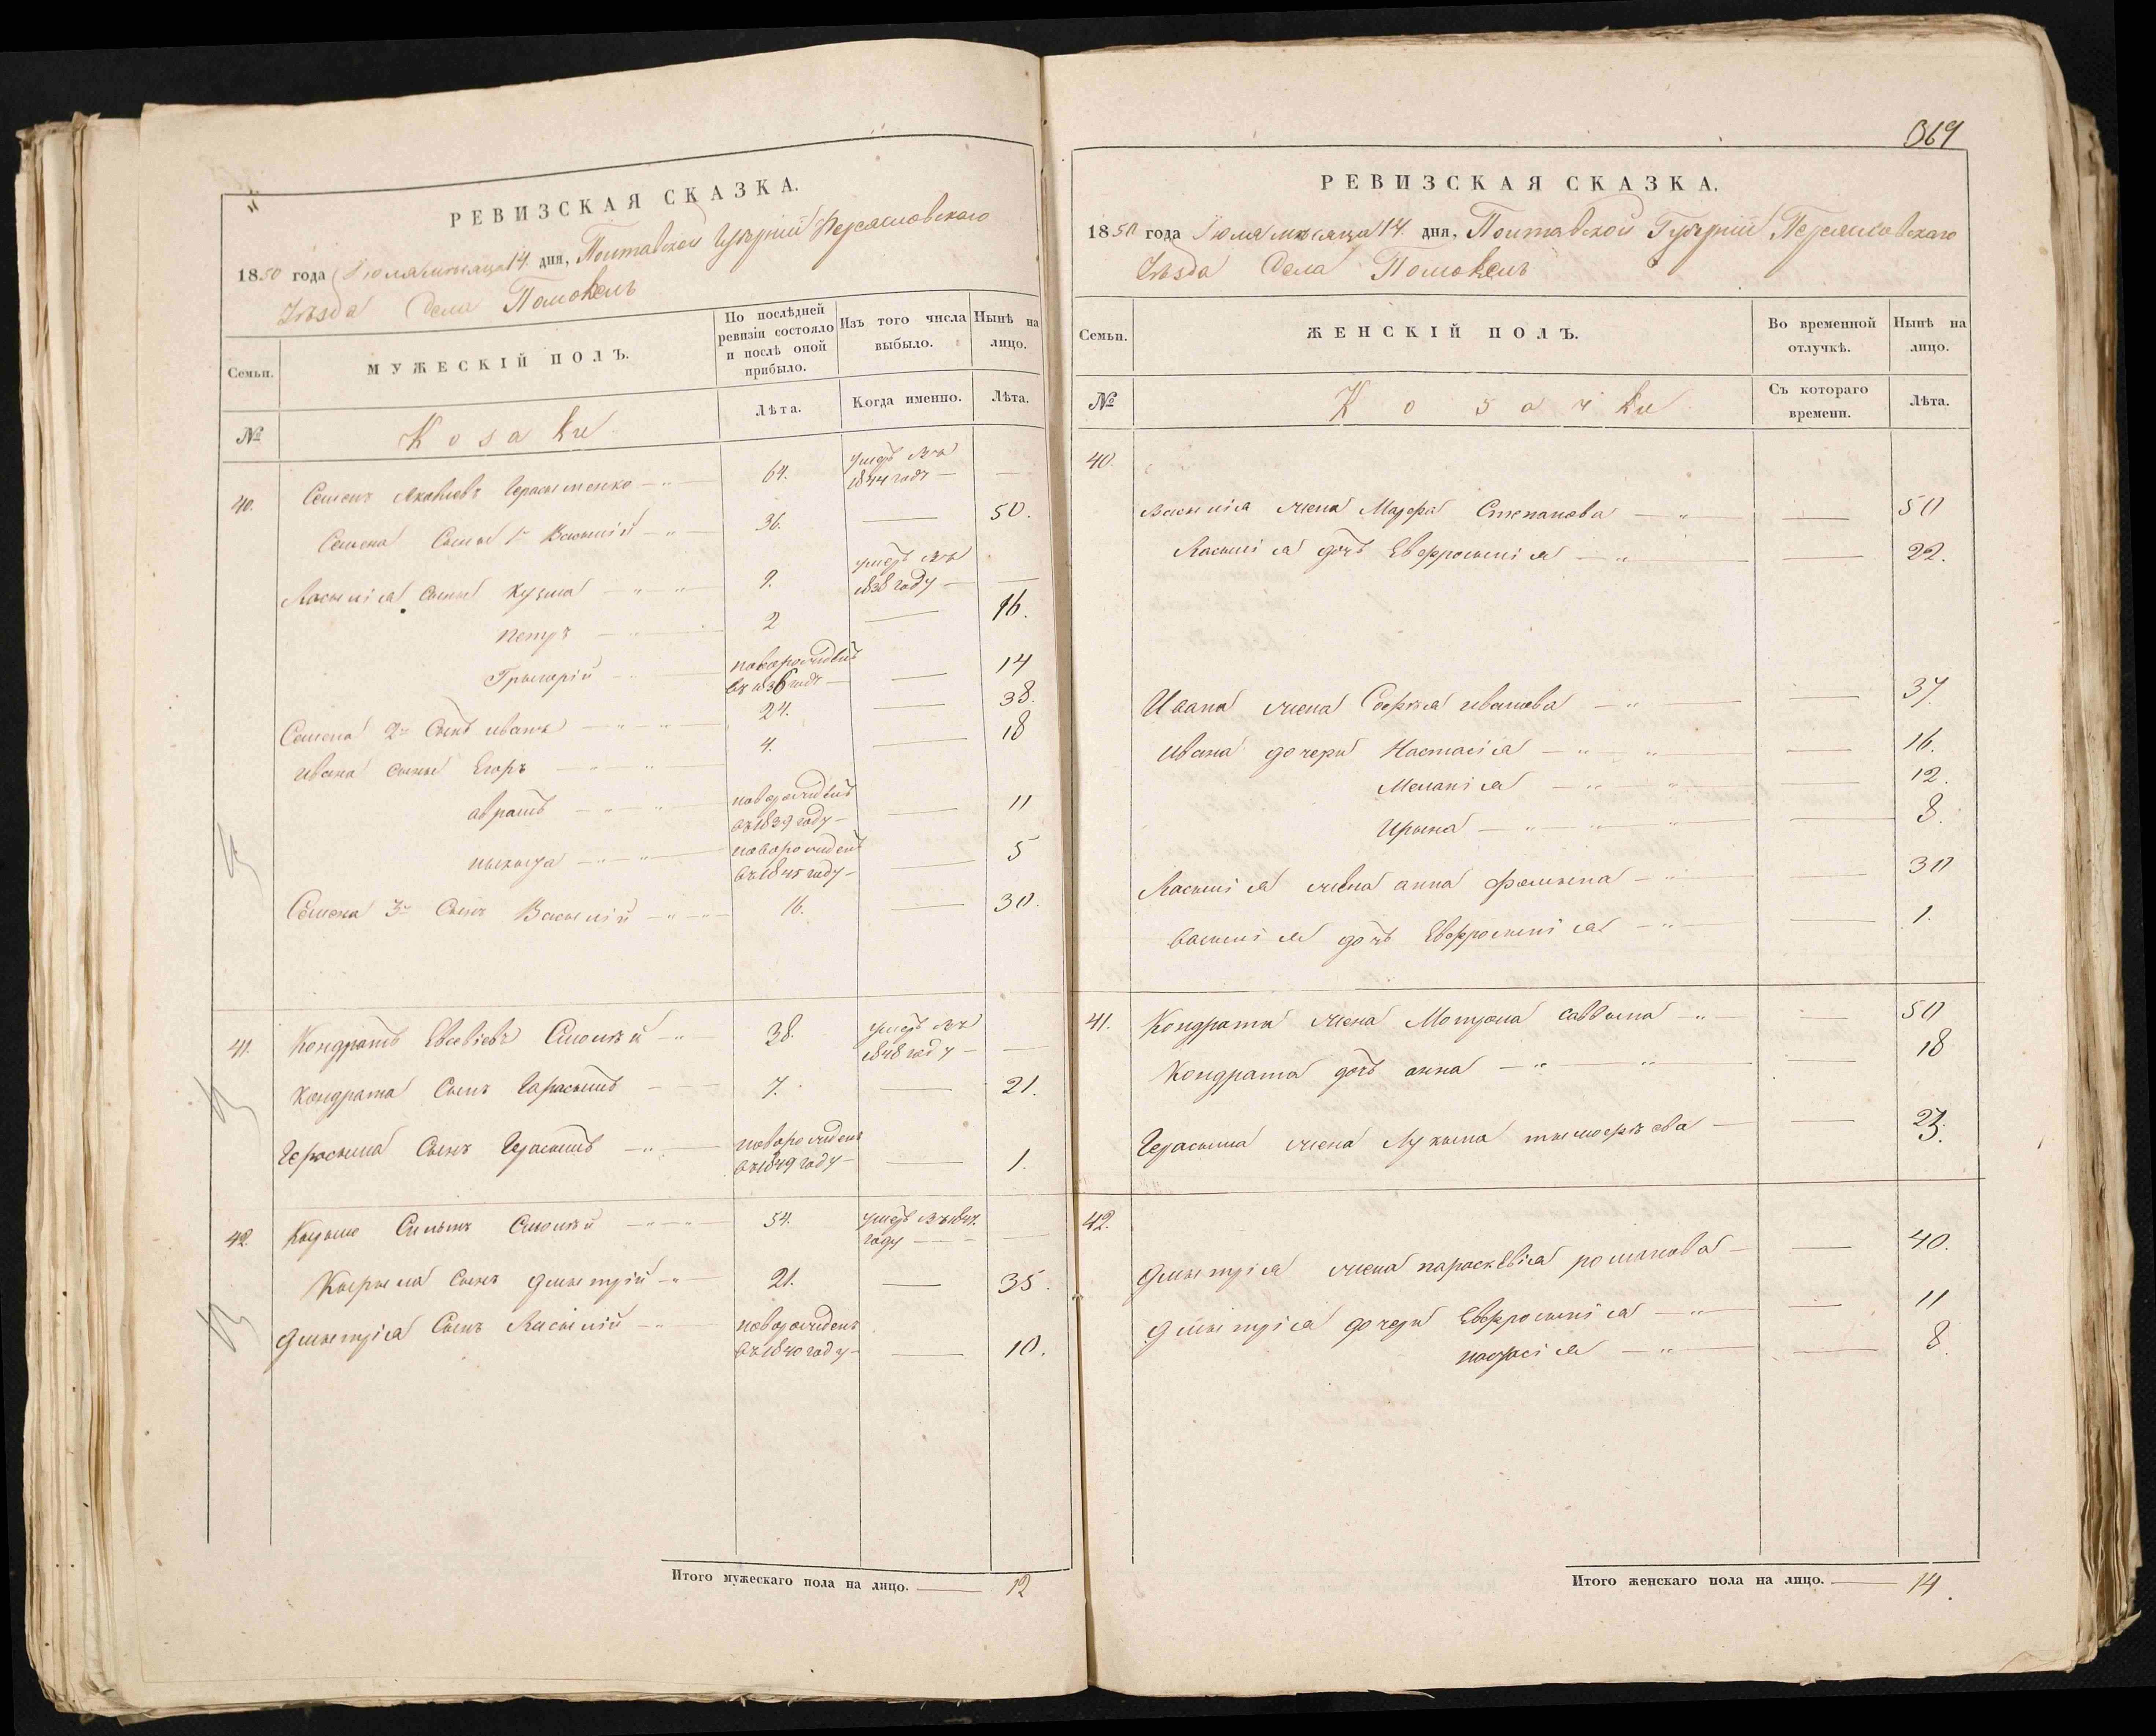 РЕВИЗСКАЯ СКАЗКА.
1850 года Июля месяца 14 дня, Полтавской Губернии Переяславского
Уезда Села Помоклъ
Семьи.
МУЖЕСКІЙ ПОЛЪ.
По послѣдней ревизіи состояло и послѣ оной прибыло.
Изъ того числа выбыло.
Нынѣ на лицо.
№
Козаки
Лѣта.
Когда именно.
Лѣта.
40. Семенъ Яковлевъ Герасименко 64. умеръ въ 1844 годѣ
Семена Сыны 1й Василій 36. 50.
Василія сыны Кузма 9. умеръ въ 1838 году
Петръ 2 16.
Григорій новорожденъ въ 1836 годѣ 14
Семена 2й Сынъ иванъ 24. 38.
ивана сыны Егоръ 4. 18
аврамъ новорожденъ въ 1839 году 11
никита новорожденъ въ 1845 году 5
Семена 3й Сынъ Василій 16. 30.
41. Кондратъ Евсѣевъ 38. умеръ въ 1848 году
Кондрата Сынъ Герасимъ 7. 21.
Герасима Сынъ Герасимъ новорожденъ въ 1849 году 1.
42. Кирыло 54. умеръ въ 184 году
Кирыла Сынъ Дмытрій 21. 35.
Дмытрія Сынъ Василій новорожденъ въ 1840 году 10.
Итого мужескаго пола на лицо. 12
369
РЕВИЗСКАЯ СКАЗКА.
1850 года Июля месяца 14 дня, Полтавской Губерніи Переяславскаго
Уезда Села Помоклъ
Семьи.
ЖЕНСКІЙ ПОЛЪ.
Во временной отлучкѣ.
Нынѣ на лицо.
№
Козачки
Съ котораго времени.
Лѣта.
40.
Василія жена Марфа Степанова 50
Василія дочь Евфросынія 22.
Ивана жена Софія иванова 37
ивана дочери Настасія 16.
Меланія 12.
Ирына 8.
Василія жена анна 30
василія дочь Евфросынія 1.
41. Кондрата жена Мотрона саввына 50
Кондрата дочь анна 18
Герасыма жена Лукыя тымофѣева 23.
42.
Дмытрія жена параскевія романова 40.
Дмытрія дочери Евфросынія 11
настасія 8.
Итого женскаго пола на лицо. 14.